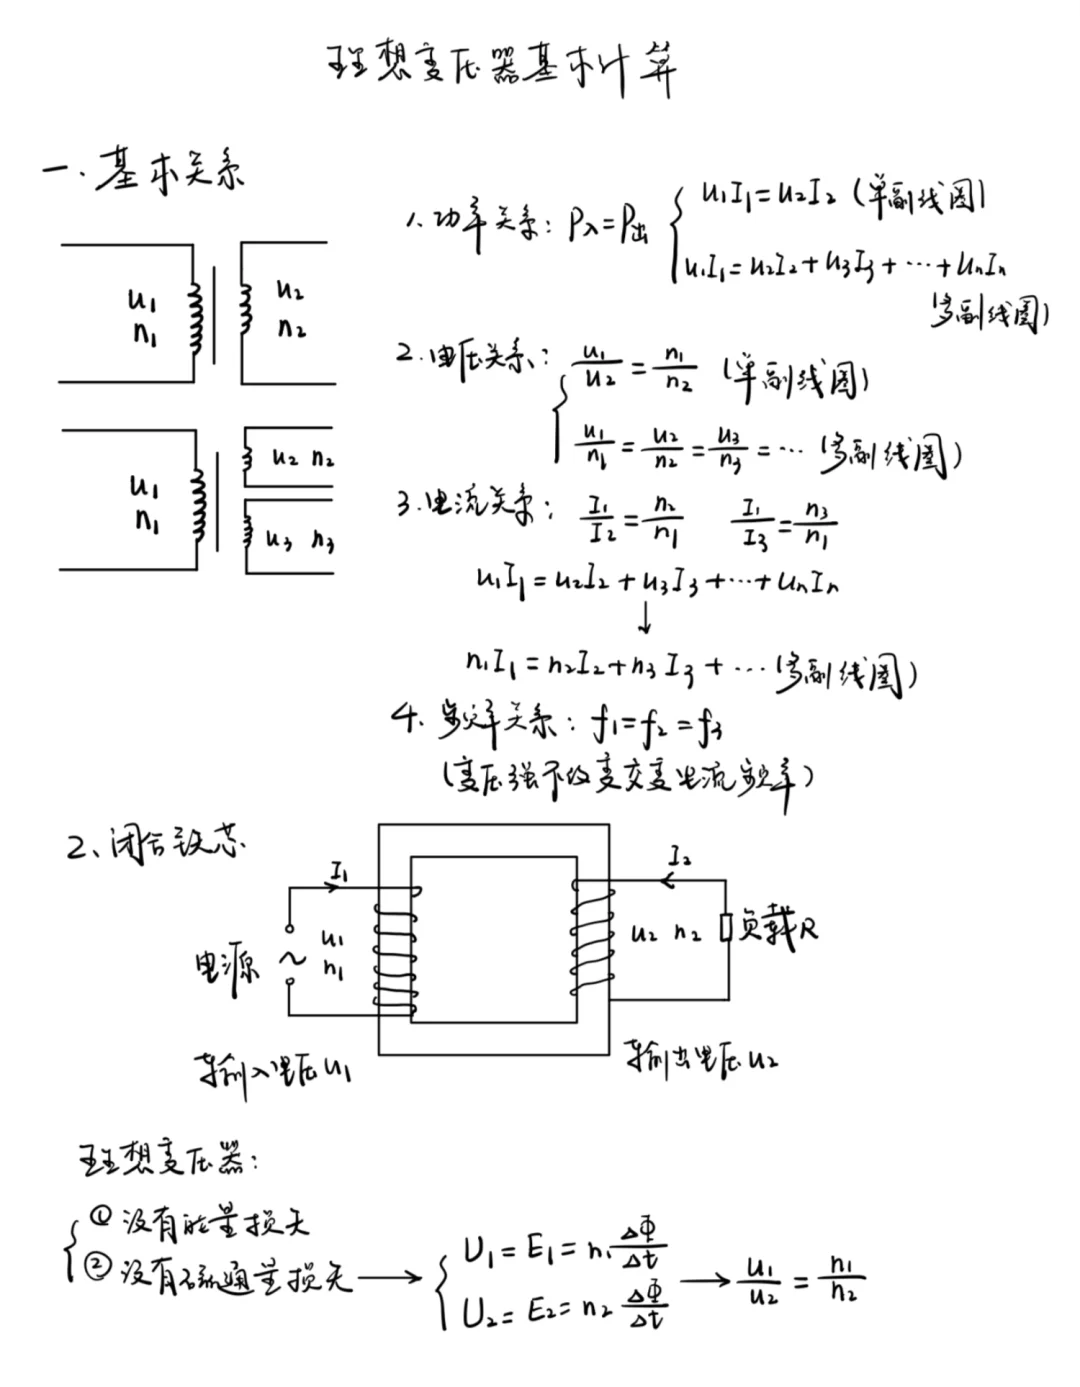 理想变压器基本计算
一.基本关系
u₁
n₁
u₂
n₂
u₁
n₁
u₂ n₂
u₃ n₃
1.功率关系: P入=P出 { u₁I₁=u₂I₂ (单副线圈)
u₁I₁=u₂I₂+u₃I₃+…+unIn
(多副线圈)
2.电压关系: { u₁/u₂=n₁/n₂ (单副线圈)
u₁/n₁=u₂/n₂=u₃/n₃=… (多副线圈)
3.电流关系: I₁/I₂=n₂/n₁ I₁/I₃=n₃/n₁
u₁I₁=u₂I₂+u₃I₃+…+unIn
↓
n₁I₁=n₂I₂+n₃I₃+…(多副线圈)
4.频率关系: f₁=f₂=f₃
(变压强不改变交变电流频率)
2、闭合铁芯
I₁
I₂
电源
~
u₁
n₁
u₂ n₂
负载R
输入电压u₁
输出电压u₂
理想变压器:
{ ①没有能量损失
②没有磁通量损失 → { U₁=E₁=n₁ΔΦ/Δt
U₂=E₂=n₂ΔΦ/Δt → u₁/u₂=n₁/n₂